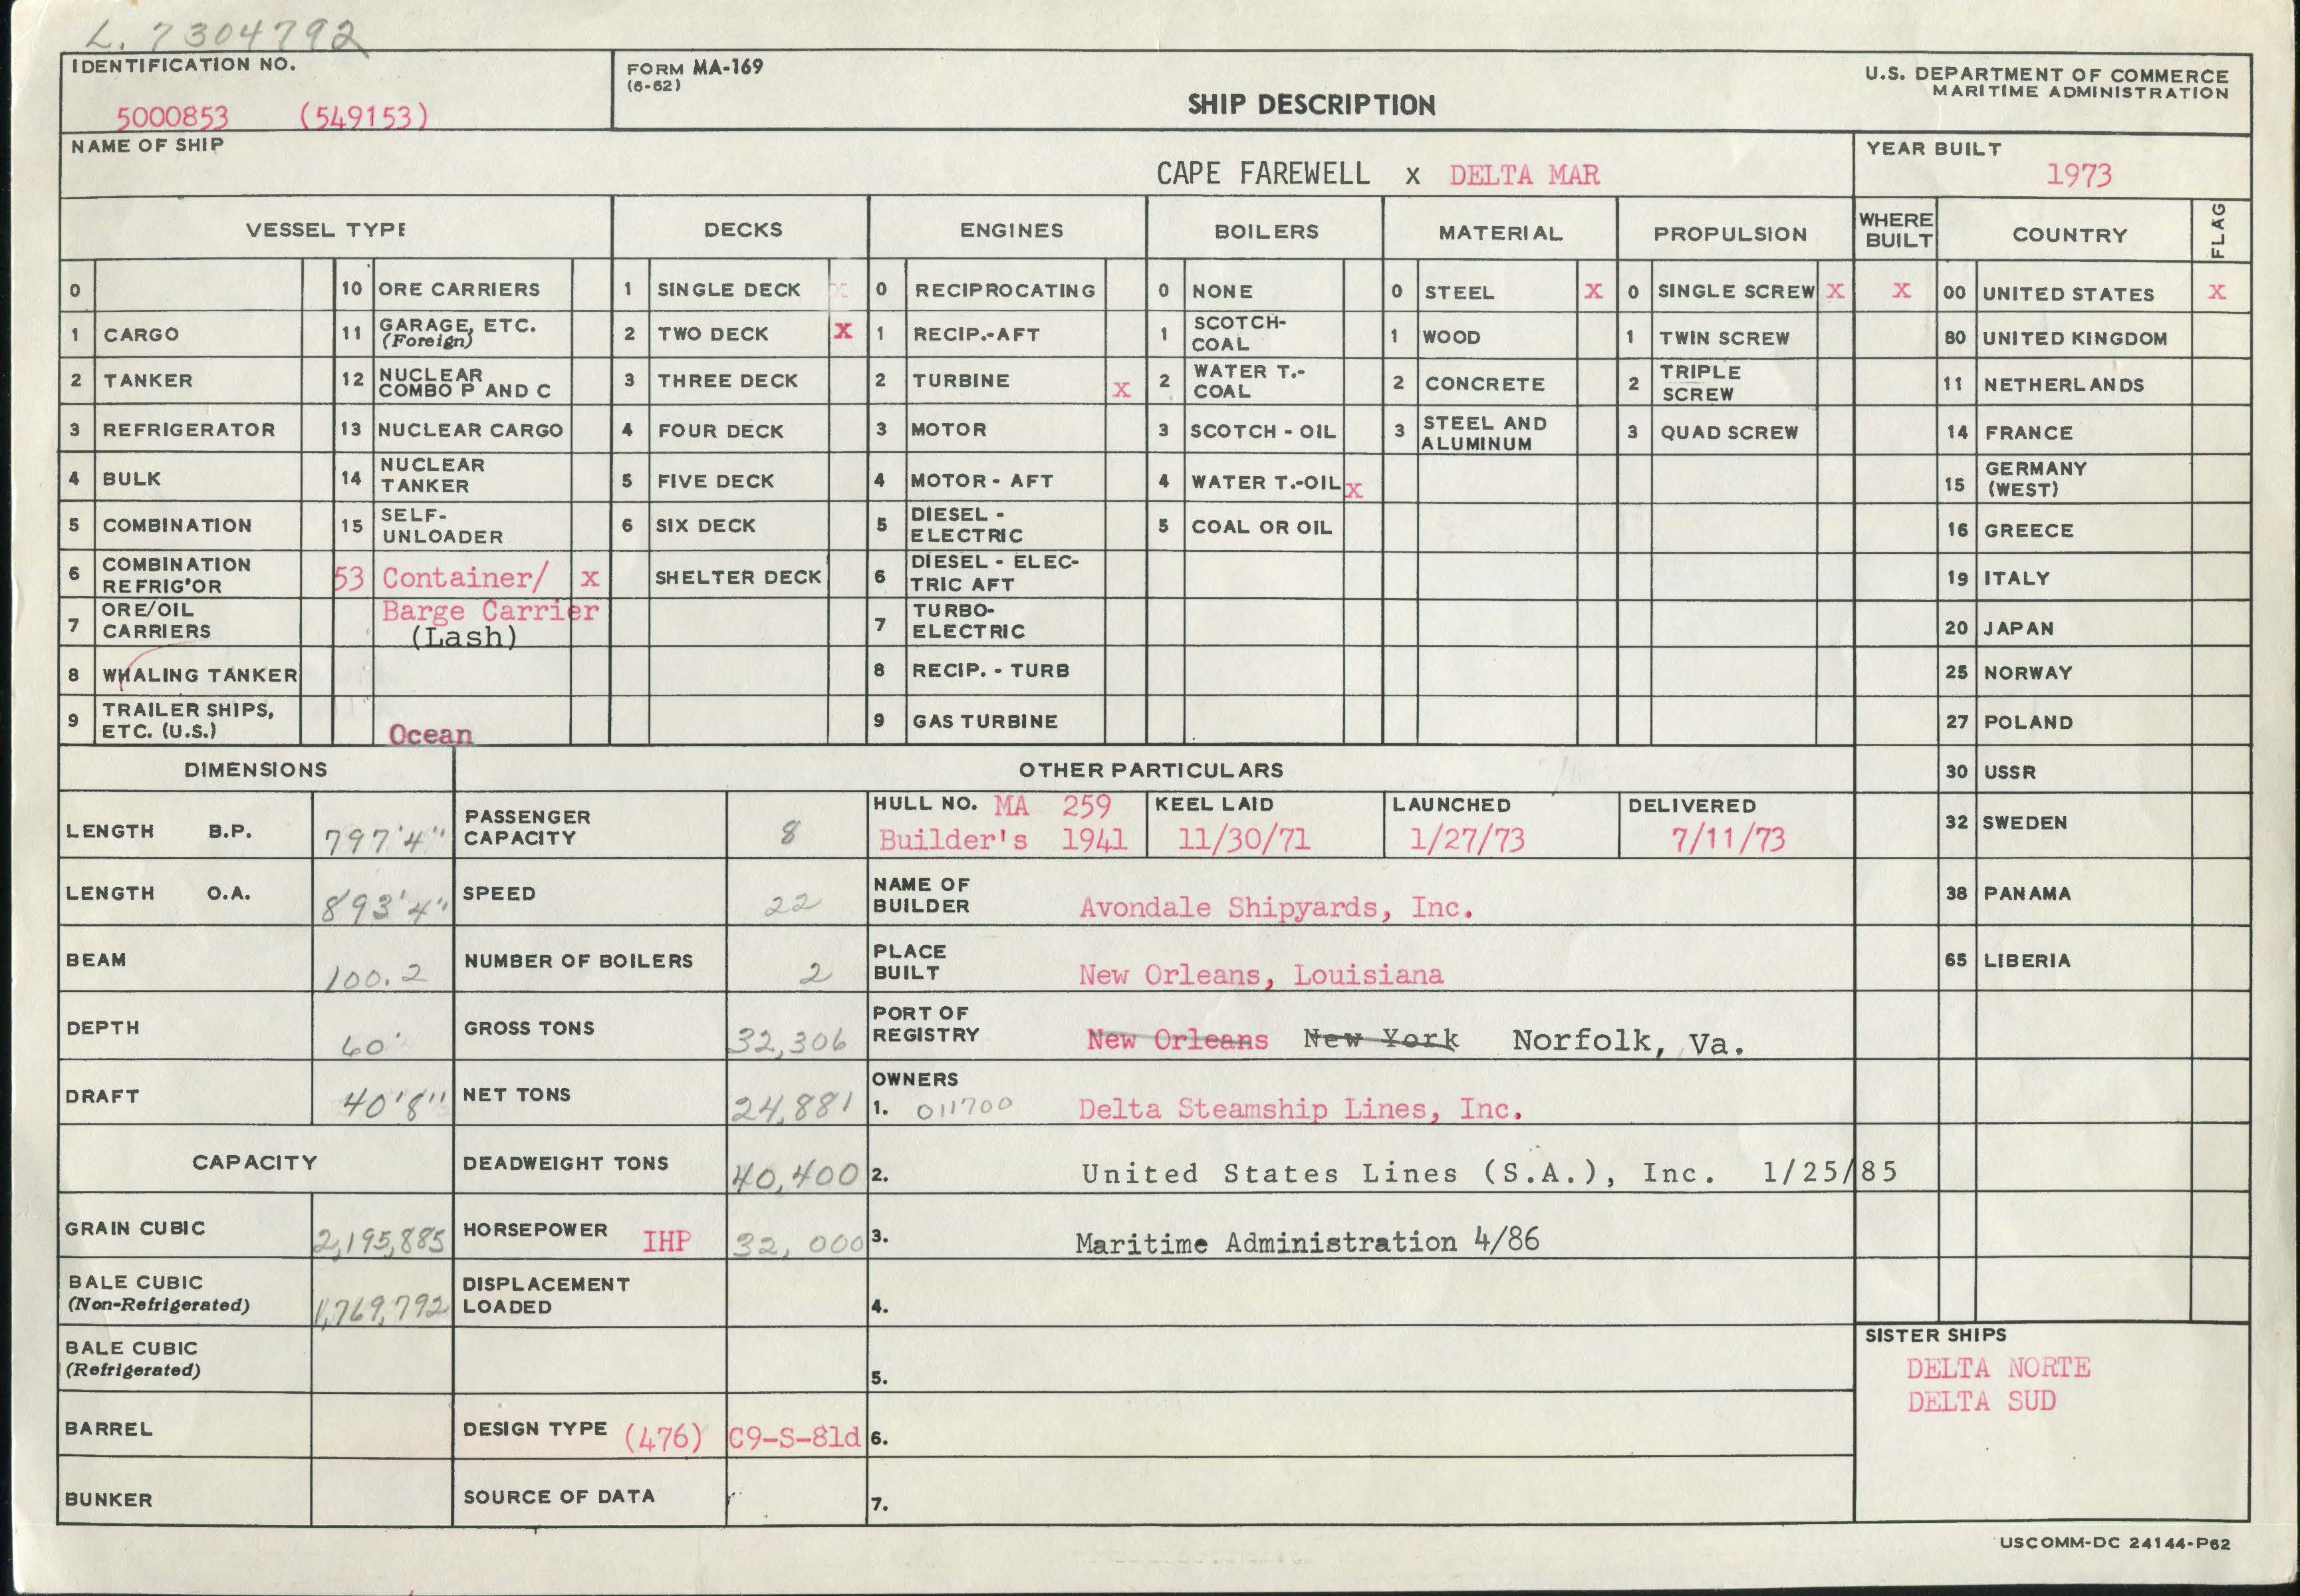 L. 7304792
IDENTIFICATION NO.
5000853 (549153)
FORM MA-169
(6-62)
SHIP DESCRIPTION
U.S. DEPARTMENT OF COMMERCE
MARITIME ADMINISTRATION
NAME OF SHIP
CAPE FAREWELL x DELTA MAR
YEAR BUILT
1973
VESSEL TYPE DECKS ENGINES BOILERS MATERIAL PROPULSION WHERE BUILT COUNTRY FLAG
0 10 ORE CARRIERS 1 SINGLE DECK x 0 RECIPROCATING 0 NONE 0 STEEL X 0 SINGLE SCREW X X 00 UNITED STATES X
1 CARGO 11 GARAGE, ETC. (Foreign) 2 TWO DECK X 1 RECIP.-AFT 1 SCOTCH-COAL 1 WOOD 1 TWIN SCREW 80 UNITED KINGDOM
2 TANKER 12 NUCLEAR COMBO P AND C 3 THREE DECK 2 TURBINE X 2 WATER T.-COAL 2 CONCRETE 2 TRIPLE SCREW 11 NETHERLANDS
3 REFRIGERATOR 13 NUCLEAR CARGO 4 FOUR DECK 3 MOTOR 3 SCOTCH - OIL 3 STEEL AND ALUMINUM 3 QUAD SCREW 14 FRANCE
4 BULK 14 NUCLEAR TANKER 5 FIVE DECK 4 MOTOR - AFT 4 WATER T.-OIL X 15 GERMANY (WEST)
5 COMBINATION 15 SELF-UNLOADER 6 SIX DECK 5 DIESEL - ELECTRIC 5 COAL OR OIL 16 GREECE
6 COMBINATION REFRIG'OR 53 Container/ x SHELTER DECK 6 DIESEL - ELEC-TRIC AFT 19 ITALY
7 ORE/OIL CARRIERS Barge Carrier (Lash) 7 TURBO-ELECTRIC 20 JAPAN
8 WHALING TANKER 8 RECIP. - TURB 25 NORWAY
9 TRAILER SHIPS, ETC. (U.S.) Ocean 9 GAS TURBINE 27 POLAND
DIMENSIONS OTHER PARTICULARS 30 USSR
LENGTH B.P. 797'4" PASSENGER CAPACITY 8 HULL NO. MA 259 Builder's 1941 KEEL LAID 11/30/71 LAUNCHED 1/27/73 DELIVERED 7/11/73 32 SWEDEN
LENGTH O.A. 893'4" SPEED 22 NAME OF BUILDER Avondale Shipyards, Inc. 38 PANAMA
BEAM 100.2 NUMBER OF BOILERS 2 PLACE BUILT New Orleans, Louisiana 65 LIBERIA
DEPTH 60' GROSS TONS 32,306 PORT OF REGISTRY New Orleans New York Norfolk, Va.
DRAFT 40'8" NET TONS 24,881 OWNERS 1. 011700 Delta Steamship Lines, Inc.
CAPACITY DEADWEIGHT TONS 40,400 2. United States Lines (S.A.), Inc. 1/25/85
GRAIN CUBIC 2,195,885 HORSEPOWER IHP 32,000 3. Maritime Administration 4/86
BALE CUBIC (Non-Refrigerated) 1,769,792 DISPLACEMENT LOADED 4.
BALE CUBIC (Refrigerated) 5.
SISTER SHIPS
DELTA NORTE
DELTA SUD
BARREL DESIGN TYPE (476) C9-S-81d 6.
BUNKER SOURCE OF DATA 7.
USCOMM-DC 24144-P62